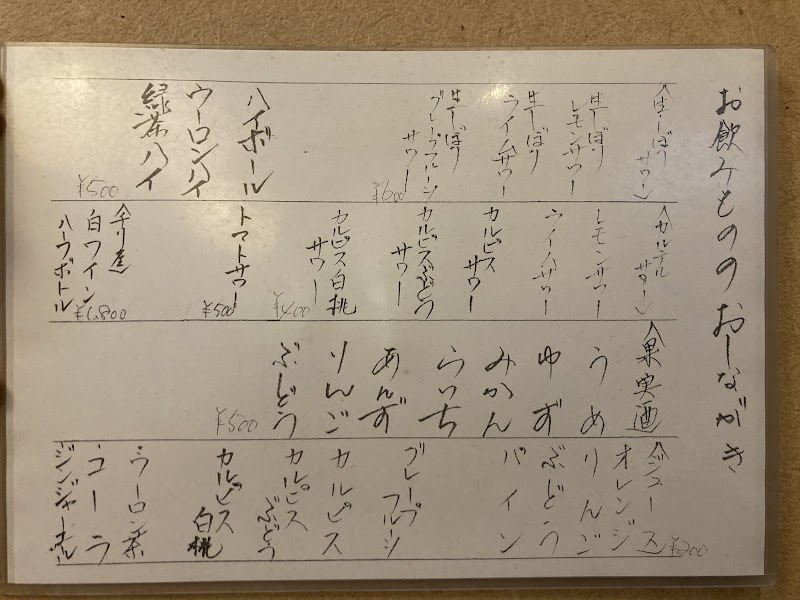 お飲みものの おしながき
〈生しぼり
サワー〉
生しぼり
レモンサワー
生しぼり
ライムサワー
生しぼり
グレープフルーツ
サワー
¥600
ハイボール
ウーロンハイ
緑茶ハイ
¥500
〈カルテル
サワー〉
レモンサワー
ライムサワー
カルピス
サワー
カルピスぶどう
サワー
カルピス白桃
サワー
¥400
トマトサワー
¥500
〈チリ産〉
白ワイン
ハーフボトル
¥1,800
〈果実酒〉
うめ
ゆず
みかん
らいち
あんず
りんご
ぶどう
¥500
〈ジュース〉
¥200
オレンジ
りんご
ぶどう
パイン
グレープ
フルーツ
カルピス
カルピス
ぶどう
カルピス
白桃
ウーロン茶
コーラ
ジンジャーエール